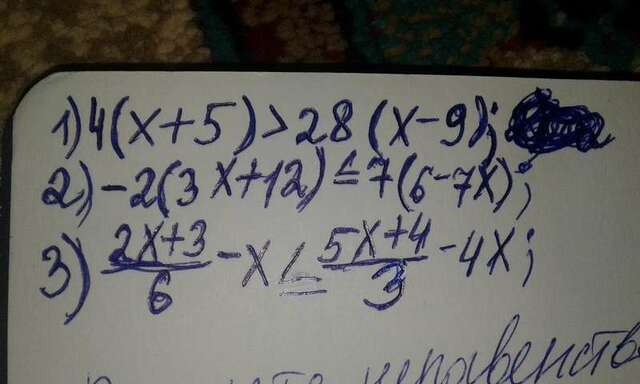 1) 4(x+5)>28(x-9);
2) -2(3x+12)≤7(6-7x);
3) (2x+3)/6 - x ≤ (5x+4)/3 - 4x;
неравенств